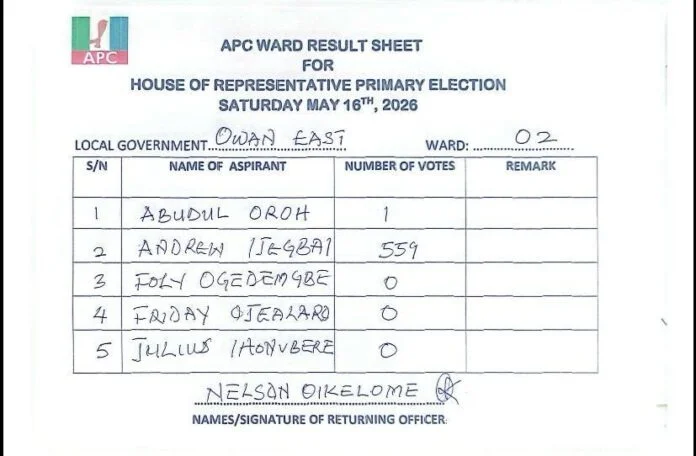 APC
APC WARD RESULT SHEET
FOR
HOUSE OF REPRESENTATIVE PRIMARY ELECTION
SATURDAY MAY 16TH, 2026
LOCAL GOVERNMENT OWAN EAST WARD: 02
S/N NAME OF ASPIRANT NUMBER OF VOTES REMARK
1 ABUDUL OROH 1
2 ANDREW IJEGBAI 559
3 FOLY OGEDEMGBE 0
4 FRIDAY OJEALARO 0
5 JULIUS IHONVBERE 0
NELSON OIKELOME
NAMES/SIGNATURE OF RETURNING OFFICER